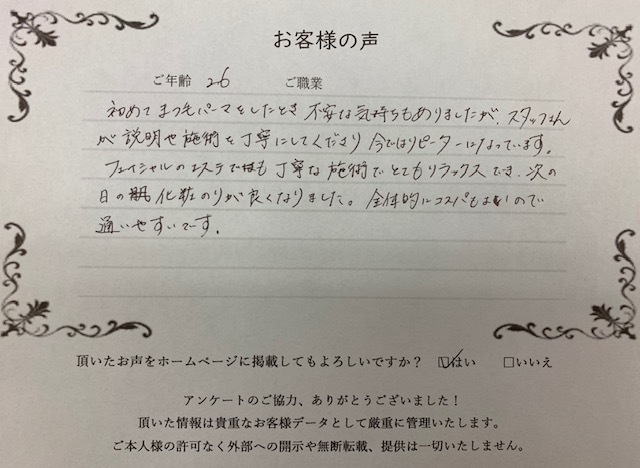 お客様の声
ご年齢 26 ご職業
初めてまつ毛パーマをしたとき 不安な気持ちもありましたが、スタッフさん
が説明や施術を丁寧にしてくださり 今ではリピーターになっています。
フェイシャルのエステでも丁寧な施術でとてもリラックスでき、次の
日の肌化粧のりが良くなりました。全体的にコスパもよいので
通いやすいです。
頂いたお声をホームページに掲載してもよろしいですか? ☑はい □いいえ
アンケートのご協力、ありがとうございました!
頂いた情報は貴重なお客様データとして厳重に管理いたします。
ご本人様の許可なく外部への開示や無断転載、提供は一切いたしません。